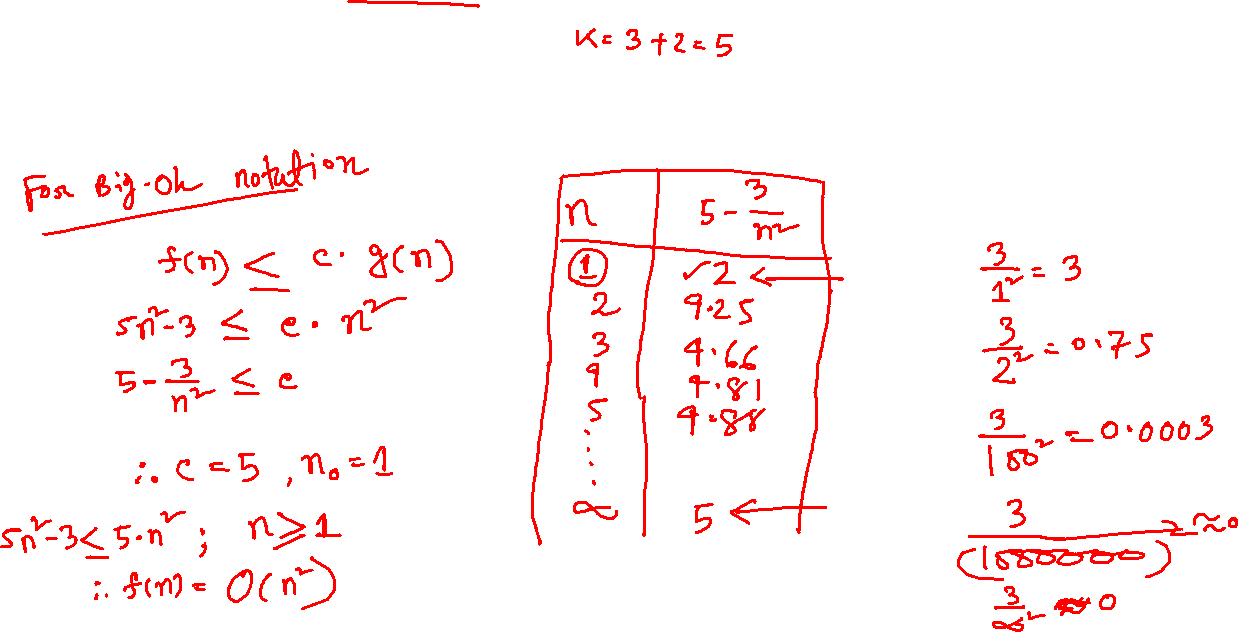 K = 3 + 2 = 5
For Big-Oh notation
f(n) ≤ c · g(n)
5n²-3 ≤ c · n²
5 - 3/n² ≤ c
∴ c = 5 , n₀ = 1
5n²-3 ≤ 5·n² ; n ≥ 1
∴ f(n) = O(n²)
n 5 - 3/n²
1 ✓2 ←
2 4.25
3 4.66
4 4.81
5 4.88
⋮
∞ 5 ←
3/1² = 3
3/2² = 0.75
3/100² = 0.0003
3/(1000000) → ≈0
3/∞² ≈ 0